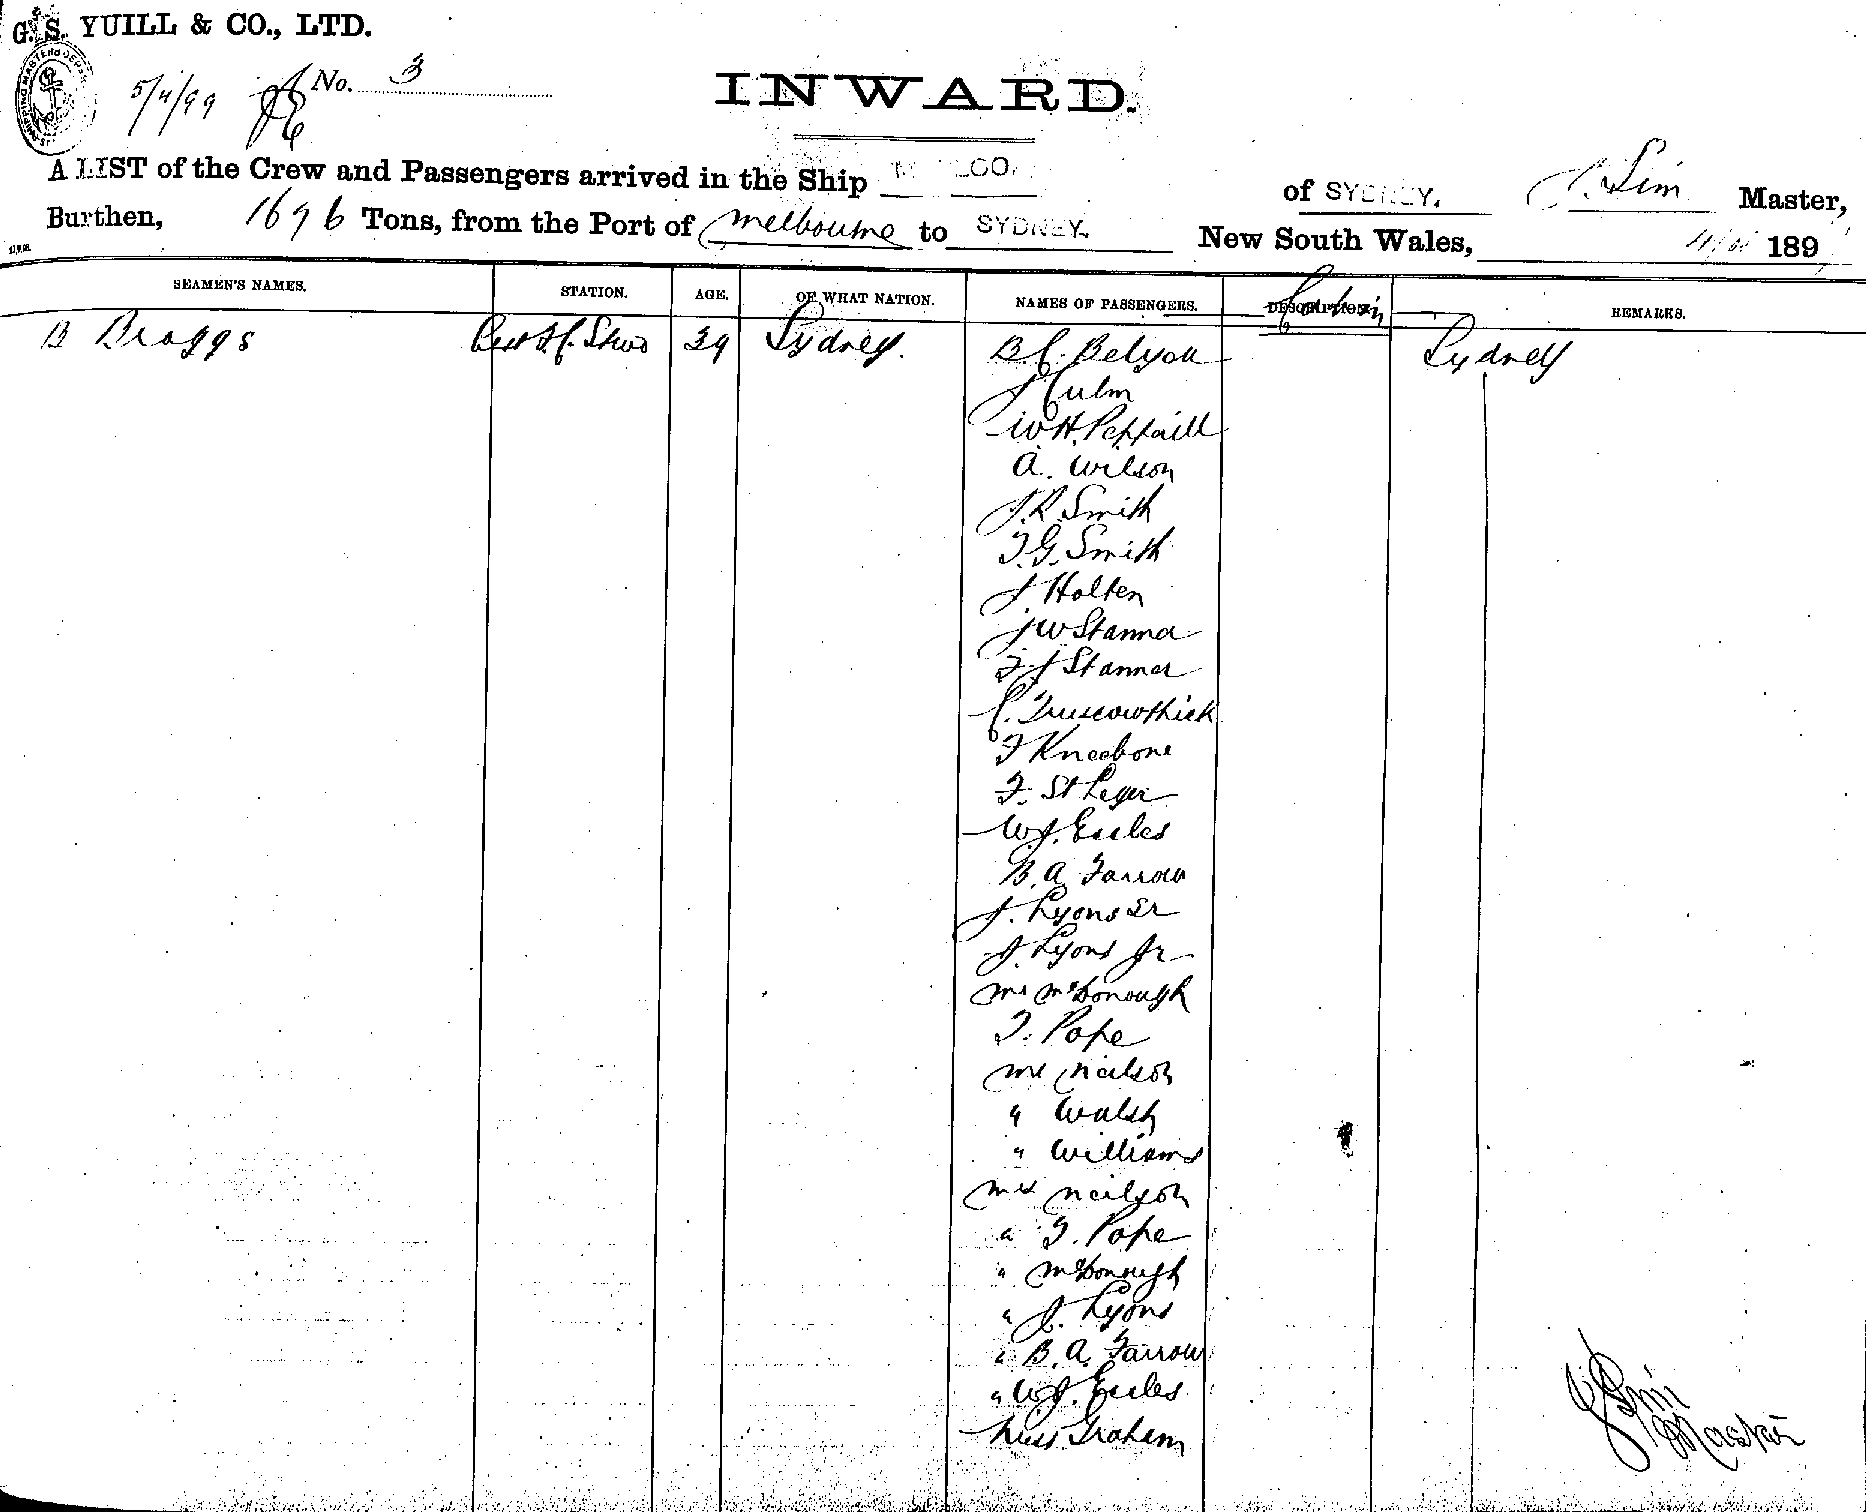 G. S. YUILL & CO., LTD.
5/4/99 No. 3
INWARD.
A LIST of the Crew and Passengers arrived in the Ship of SYDNEY. J. Sim Master,
Burthen, 1696 Tons, from the Port of Melbourne to SYDNEY. New South Wales, 189
SEAMEN'S NAMES. STATION. AGE. OF WHAT NATION. NAMES OF PASSENGERS. DESCRIPTION. REMARKS.
Cabin
B Braggs 39 Sydney. Sydney
J Culm
W. H. Peppaill
A. Wilson
J. R. Smith
F. G. Smith
J Holten
J W Stanna
F J Stanner
C. Truscowthick
F Kneebone
F. St Leger
W. J. Eccles
B. A Farrow
J. Lyons Sr
J. Lyons Jr
Mr McDonough
F. Pope
Mr Neilson
" Walsh
" Williams
Mrs Neilson
" F. Pope
" McDonough
" J. Lyons
" B. A. Farrow
" W. J. Eccles
Miss Graham
J Sim
Master